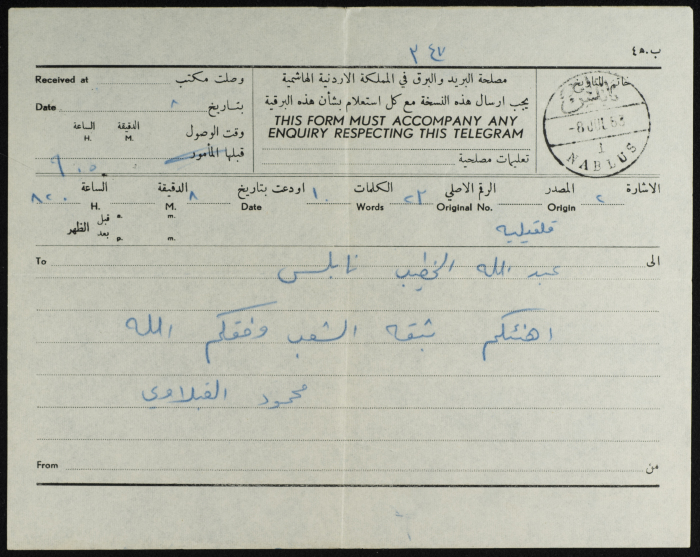 ٣٤٧
ب.ه٤
Received at وصلت مكتب
Date ٨ بتاريخ
الساعة الدقيقة وقت الوصول
H. M.
قبلها المأمور
مصلحة البريد والبرق في المملكة الاردنية الهاشمية
يجب ارسال هذه النسخة مع كل استعلام بشأن هذه البرقية
THIS FORM MUST ACCOMPANY ANY
ENQUIRY RESPECTING THIS TELEGRAM
تعليمات مصلحية
خاتم بالتاريخ
نابلس
-8 JUL 63
1
NABLUS
الاشارة ٢ المصدر الرقم الاصلي ٢٣ الكلمات ١٠ اودعت بتاريخ ٨ الدقيقة الساعة ٨٢٠
Origin Original No. Words Date M. H.
قبل الظهر a. m.
بعد p. m.
قلقيليه
To عبد الله الخطيب نابلس الى
اهنئكم بثقه الشعب وفقكم الله
محمود
From من